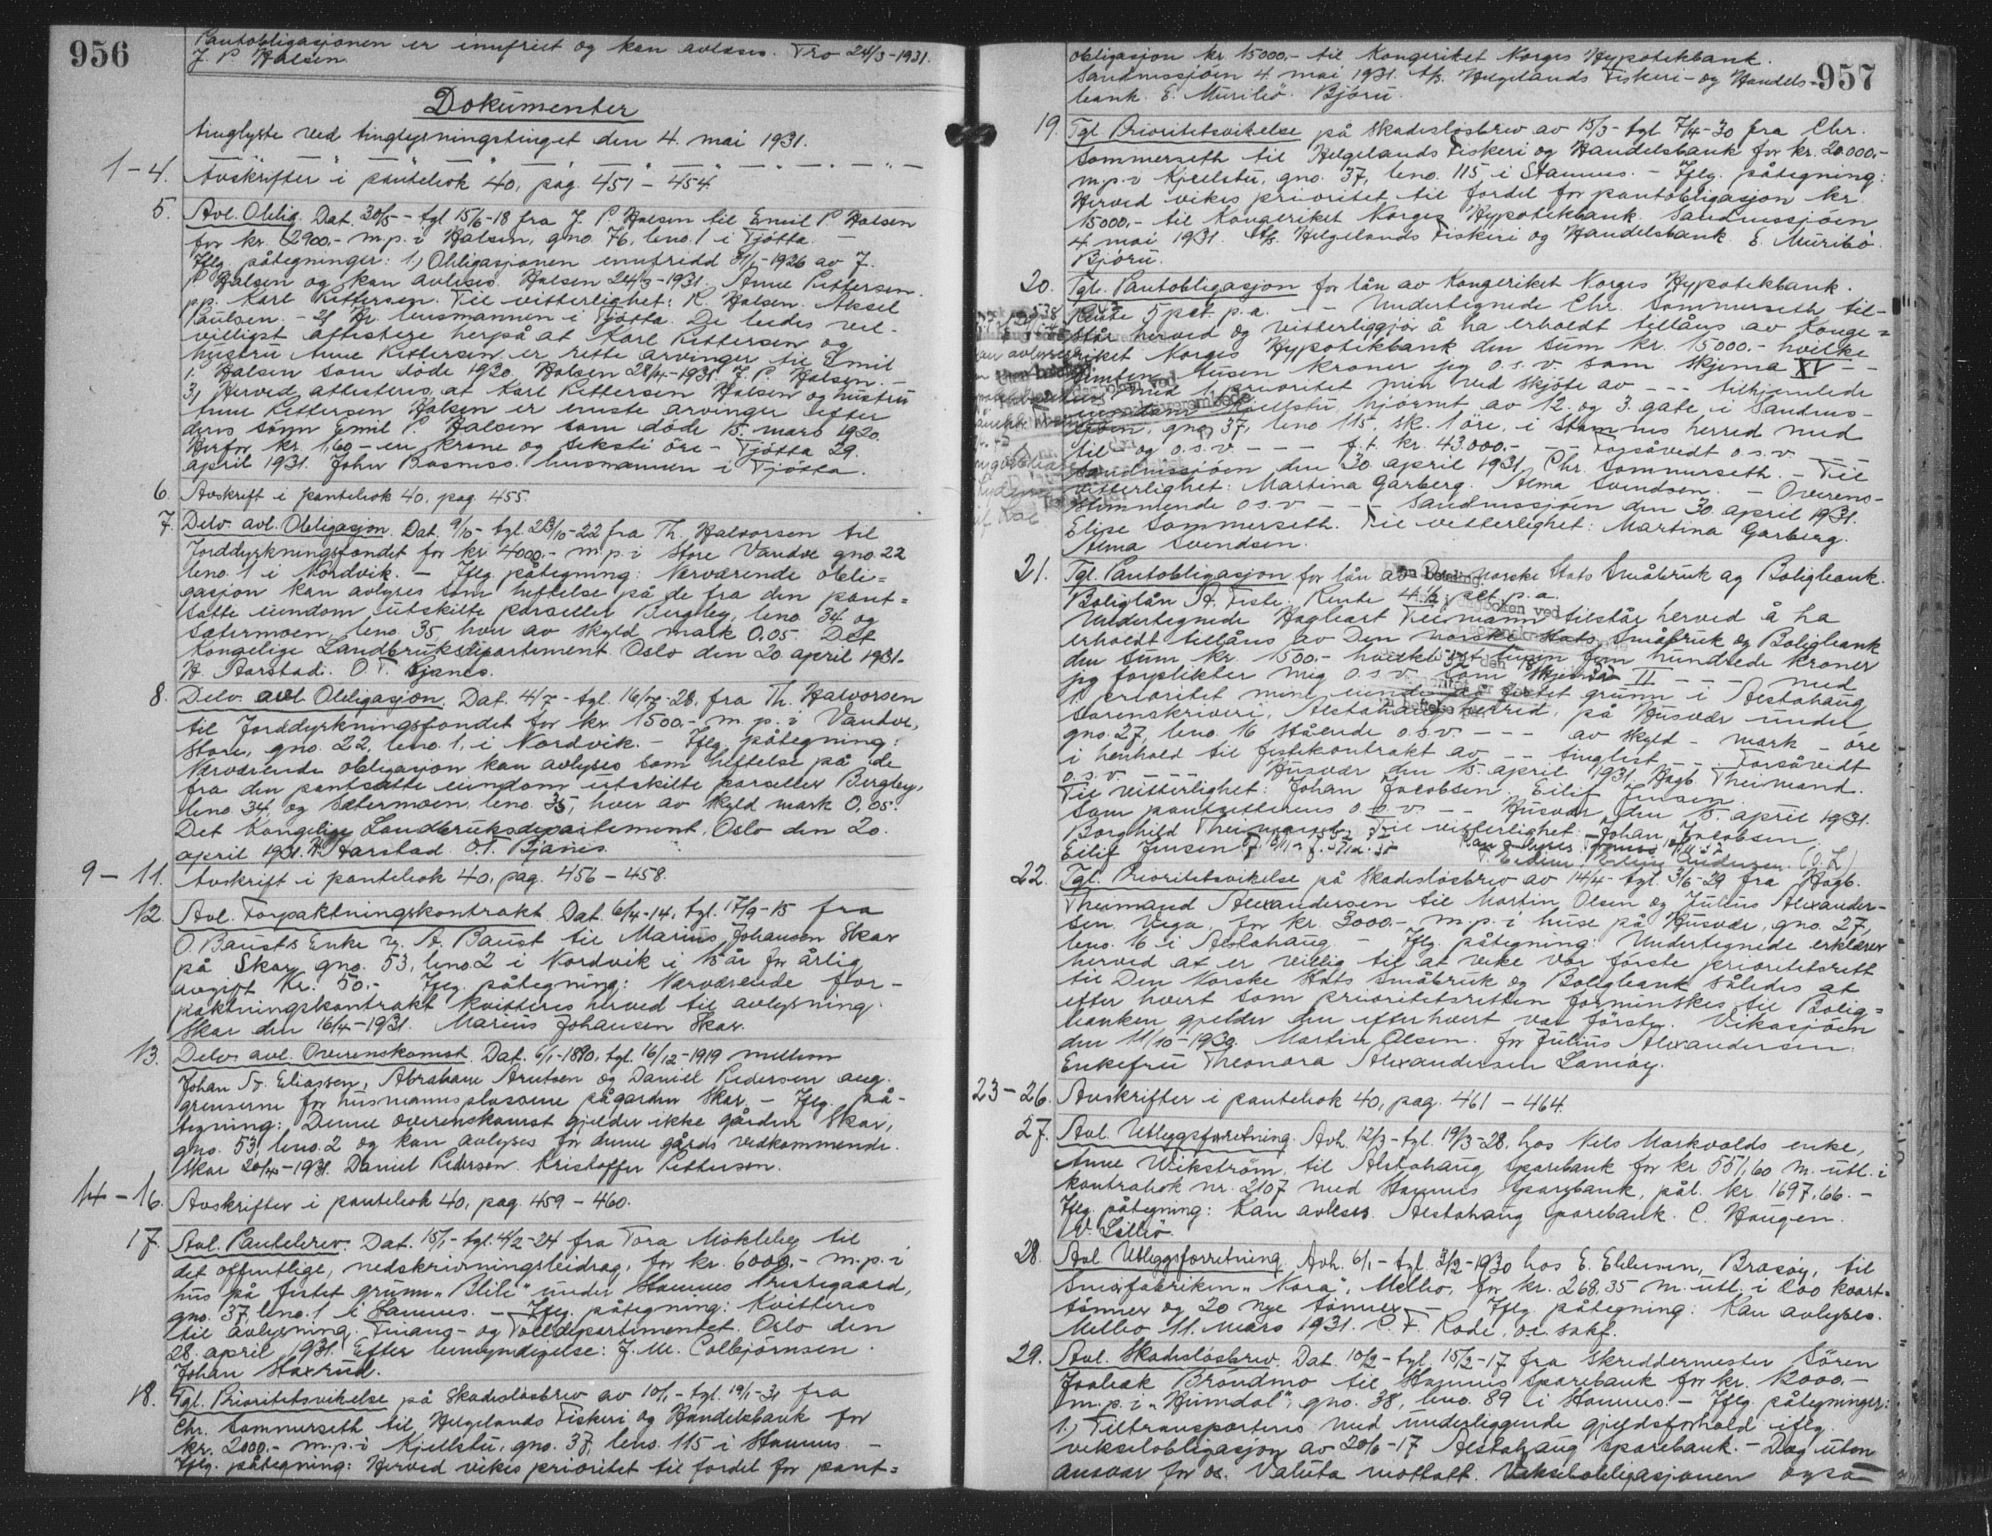 956
Pantobligasjonen er innfriet og kan avlæses. Tro 24/3-1931.
J. P Halsen
Dokumenter
tinglyste ved tinglysningstinget den 4. mai 1931.
1-4. Avskrifter i pantebok 40, pag. 451 - 454
5. Avl. Oblig. Dat. 30/5 - tgl 15/6-18 fra J. P Halsen til Emil P. Halsen
for kr. 2900,- m.p. i Halsen, gno. 76, bno. 1 i Tjøtta. -
Iflg. påtegninger: 1) Obligasjonen innfridd 31/1-1926 av J.
P Halsen og kan avlæses. Halsen 24/3-1931. Anne Pettersen.
pp. Karl Pettersen. Til vitterlighet: K. Halsen. Aksel
Paulsen. - 2) Hr. lensmannen i Tjøtta. De bedes vel-
villigst attestere herpå at Karl Pettersen og
hustru Anne Pettersen er rette arvinger til Emil
P. Halsen som døde 1920. Halsen 28/4-1931. J. P. Halsen. -
3) Herved attesteres at Karl Pettersen Halsen og hustru
Anne Pettersen Halsen er eneste arvinger efter
deres sønn Emil P. Halsen som døde 15. mars 1920.
Herfor kr. 1,60 - en krone og seksti øre - Tjøtta 29.
april 1931. John Basmoss. lensmannen i Tjøtta.
6. Avskrift i pantebok 40, pag. 455.
7. Delv. avl. Obligasjon. Dat. 9/10 - tgl. 23/10-22 fra Th. Halvorsen til
Jorddyrkningsfondet for kr. 4000,- m.p. i Store Vandve gno. 22
bno. 1 i Nordvik. - Iflg. påtegning: Nærværende obli=
gasjon kan avlyses som heftelse på de fra den pant=
satte eiendom utskilte parseller Bergly, bno. 34 og
Sætermoen, bno. 35, hver av skyld mark 0.05. Det
Kongelige Landbruksdepartement. Oslo den 20. april 1931.
H. Aarstad. O. T. Bjanes.
8. Delv. avl. Obligasjon. Dat. 4/7 - tgl. 16/7-28. fra Th. Halvorsen
til Jorddyrkningsfondet for kr. 1500,- m.p. i Vandve,
Store, gno. 22, bno. 1. i Nordvik. - Iflg. påtegning:
Nærværende obligasjon kan avlyses som heftelse på de
fra den pantsatte eiendom utskilte parseller Bergley,
bno. 34, og Sætermoen, bno. 35, hver av skyld mark 0.05.
Det Kongelige Landbruksdepartement, Oslo den 20.
april 1931. H. Aarstad. O.T. Bjanes.
9 - 11. Avskrift i pantebok 40, pag. 456 - 458.
12. Avl. Forpaktningskontrakt. Dat. 6/4-14, tgl. 17/9-15 fra
O. Bausts Enke v. A. Baust til Marius Johansen Skar
på Skar, gno. 53, bno. 2 i Nordvik i 15 år for årlig
avgift Kr. 50.- Iflg. påtegning: Nærværende for-
paktningskontrakt kvitteres herved til avlysning.
Skar den 16/4-1931. Marius Johansen Skar.
13. Delv. avl. Overenskomst. Dat. 6/1-1890, tgl. 16/12-1919 mellem
Johan Eliassen, Abraham Arntsen og Daniel Pedersen ang.
grenserne for husmannsplassene på gården Skar. - Iflg. på-
tegning: Denne overenskomst gjelder ikke gården Skar,
gno. 53, bno. 2 og kan avlyses for denne gårds vedkommende.
Skar 20/4-1931. Daniel Pedersen. Kristoffer Pettersen.
14 - 16. Avskrifter i pantebok 40, pag. 459 - 460.
17. Avl. Pantebrev. Dat. 15/1 - tgl. 4/2-24 fra Tora Mökleby til
det offentlige, nedskrivningsbidrag, for kr. 6000,- m.p. i
hus på festet grunn "Blili" under Stamnes Prestegaard,
gno. 37, bno. 1 i Stamnes. - Iflg. påtegning: Kvitteres
til avlysning. Finans- og Tolldepartementet. Oslo den
28. april 1931. Efter bemyndigelse: J. M. Colbjørnsen.
Johan Haxrud.
18. Tgl. Prioritetsvikelse på Skadesløsbrev av 10/1 - tgl. 19/1-31 fra
Chr. Sommerseth til Helgelands Fiskeri og Handelsbank for
kr. 2000,- m.p. i Kjellstu, gno. 37, bno. 115 i Stamnes. -
Iflg. påtegning: Herved vikes prioritet til fordel for pant=
957
obligasjon kr 15000,- til Kongeriket Norges Hypotekbank.
Sandnessjøen 4. mai 1931. t/p. Helgelands Fiskeri- og Handels-
bank. E. Muribø. Bjøru.
19. Tgl. Prioritetsvikelse på Skadesløsbrev av 15/3 - tgl. 7/4-30 fra Chr.
Sommerseth til Helgelands Fiskeri og Handelsbank for kr. 20.000,-
m.p. i Kjellstu, gno. 37, bno. 115 i Stamnes. - Iflg. påtegning:
Herved vikes prioritet til fordel for pantobligasjon kr.
15000,- til Kongeriket Norges Hypotekbank. Sandnessjøen
4. mai 1931. t/p. Helgelands Fiskeri og Handelsbank. E. Muribø.
Bjøru.
20. Tgl. Pantobligasjon for lån av Kongeriket Norges Hypotekbank.
Rente 5 pct. p.a. - - Undertegnede Chr. Sommerseth til-
står herved og vitterliggjør å ha erholdt tillåns av Konge=
riket Norges Hypotekbank den sum kr. 15000,- hvilke
femten tusen kroner jeg o.s.v. som skjema XV - -
med 1. prioritet min ved skjøte av - - - tilhjemlede
eiendom Kjellstu, hjørnet av 12. og 3. gate i Sandnes-
sjøen, gno. 37, bno 115, sk. 1 øre, i Stamnes herred med
til og o.s.v. - - - f.t. kr. 43.000.- - Forsåvidt o.s.v. - -
Sandnessjøen den 30. april 1931. Chr. Sommerseth. - Til
vitterlighet: Martina Garberg. Alma Svendsen. - Overens-
stemmende o.s.v. - - - Sandnessjøen den 30. april 1931.
Elise Sommerseth. Til vitterlighet: Martina Garberg.
Alma Svendsen.
21. Tgl. Pantobligasjon for lån av Den norske Stats Småbruk og Boligbank.
Boliglån A. Feste. Rente 4 1/2 pct p.a.
Undertegnede Hagbart Theimann tilstår herved å ha
erholdt tillåns av Den norske Stats Småbruk og Boligbank
den sum kr. 1500.- hvilke et tusen fem hundrede kroner
jeg forplikter meg o.s.v. som skjema II - - - - med
1. prioritet mine på festet grunn i Alstahaug
sorenskriveri, Alstahaug herred, på Husvær under
gno. 27, bno. 16 stående o.s.v. - - - av skyld - mark - øre
i henhold til festekontrakt av - - tinglest - - Forsåvidt
o.s.v. - - - - Husvær den 15. april 1931. Hagb. Theimand.
Til vitterlighet: Johan Jacobsen. Eilif Jensen.
Som pantsetterens o.s.v. - - Husvær den 15. april 1931.
Borghild Theimann. Til vitterlighet: Johan Jacobsen
Eilif Jensen
22. Tgl. Prioritetsvikelse på Skadesløsbrev av 14/4 - tgl. 3/6-29 fra Hagb.
Theimand Alexandersen til Martin Olsen og Julius Alexander-
sen Vega, for kr. 3000.- m.p. i huse på Husvær, gno. 27,
bno. 16 i Alstahaug. - Iflg. påtegning: Undertegnede erklærer
herved at er villig til at vike vor første prioritetsrett
til Den Norske Stats Småbruk og Boligbank således at
efter hvert som prioritetsretten forminskes til Bolig=
banken gjelder den efterhvert vor første. Vikasjøen
den 11/10-1930. Martin Olsen. for Julius Alexandersen.
Enkefru Theonora Alexandersen Lamøy.
23 - 26. Avskrifter i pantebok 40, pag. 461 - 464.
27. Avl. Utleggsforretning. Avh. 12/3 - tgl. 19/3-28. hos Nils Markvolds enke,
Anne Wikström, til Alstahaug Sparebank for kr 551,60 m. utl. i
kontrabok nr. 2107 med Stamnes Sparebank, pål. kr 1697,66. -
Iflg. påtegning: Kan avlyses. Alstahaug Sparebank. C. Haugen.
W. Lillebø
28. Avl. Utleggsforretning. Avh. 6/1 - tgl. 3/2-1930 hos E. Ebbesen, Brasøy, til
Smörfabriken "Nora", Melbo, for kr. 268,35 m. utl. i 200 kvart-
tønner og 20 nye tønner. - Iflg. påtegning: Kan avlyses.
Melbo 11. mars 1931. C. F. Rode, o.r. sakf.
29. Avl. Skadesløsbrev. Dat. 10/2 - tgl. 15/2-17 fra Skreddermester Sören
Joakak Bröndmo til Stamnes Sparebank for kr. 12000.-
m.p. i "Heimdal", gno. 38, bno. 89 i Stamnes. - Iflg. påtegninger:
1.) Tiltransporteres med underliggende gjeldsforhold iflg.
vekselobligasjon av 20/6-17 Alstahaug Sparebank. - Dog uten
ansvar for os. Valuta mottatt. Vekselobligasjonen også